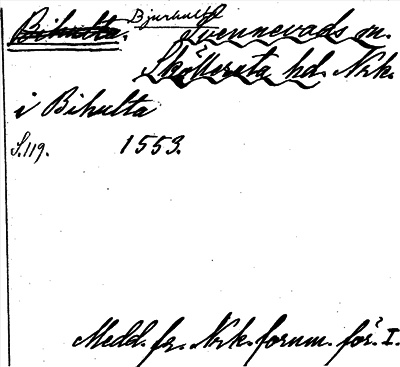 Bihulta. Bjurhult
Svennevads sn.
Sköllersta hd. Nrk.
i Bihulta
S. 119. 1553.
Medd. fr. Nrk. fornm. för. I.